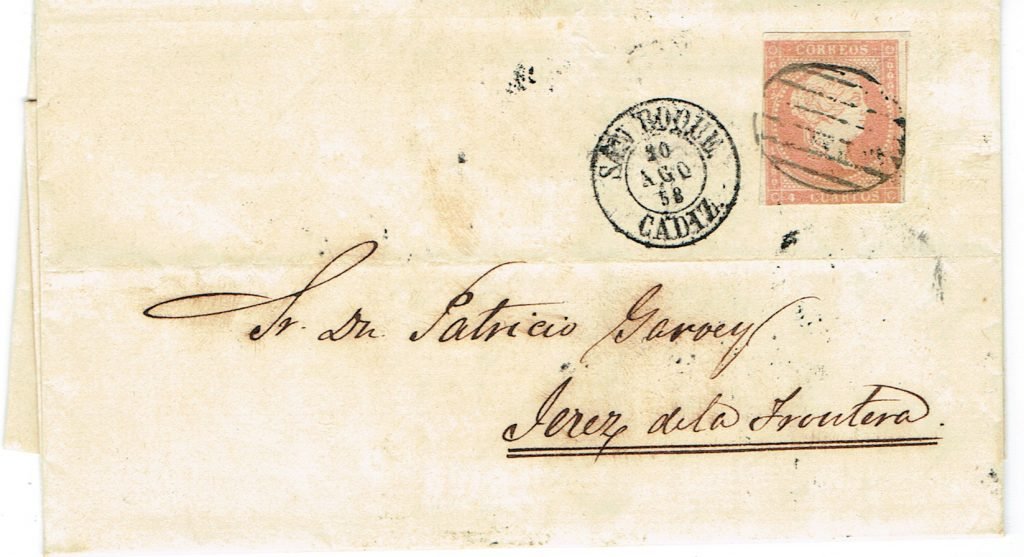 CORREOS
SAN ROQUE
20
AGO
58
CADIZ.
4 CUARTOS
Sr. Dn. Patricio Garvey
Jerez de la Frontera.